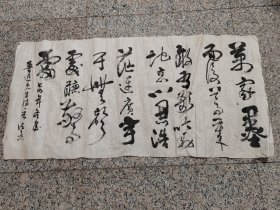 萬家墨
面沒蒿萊
敢有歌吟動
地哀心事浩
茫連廣宇
于無聲
處聽驚
雷